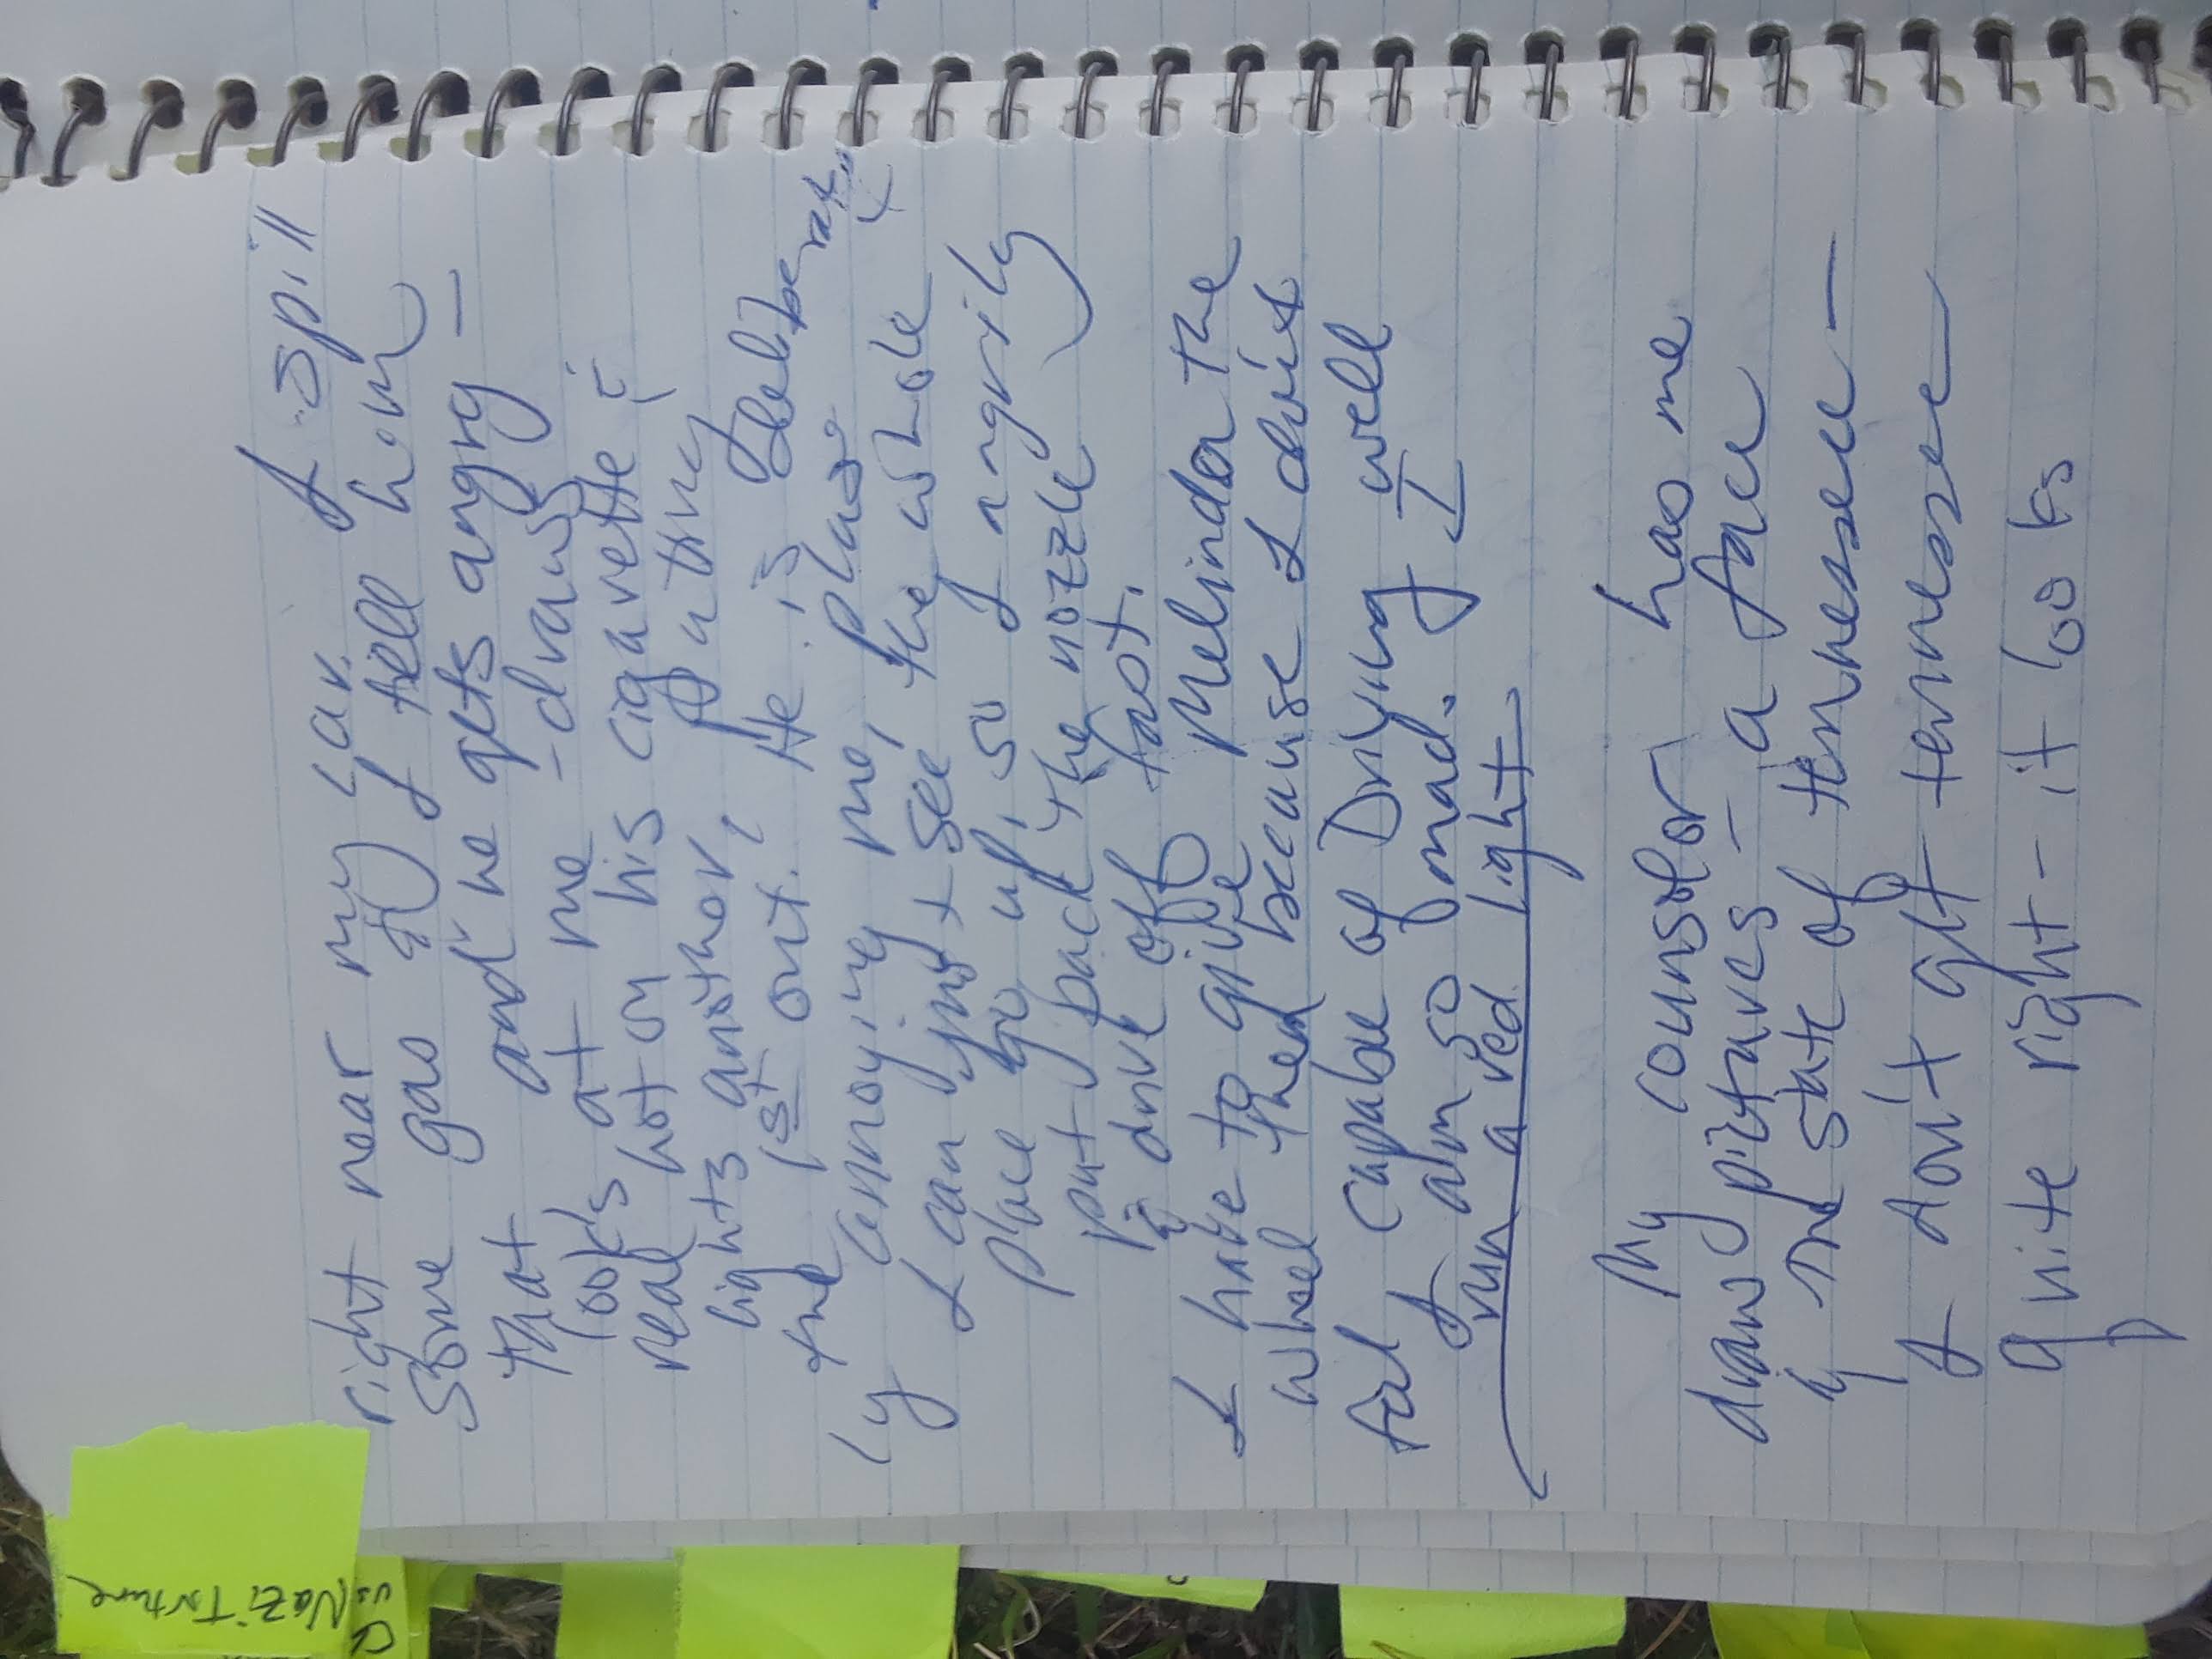 right near my car. I spill
some gas & I tell him
that and he gets angry —
looks at me - draws
real hot on his cigarette &
lights another, putting
the 1st out. He is deliberate
ly annoying me, plus
I can just see the whole
place go up, so I angrily
put back the nozzle
& drive off fast.
I have to give Melinda the
wheel then because I don't
feel capable of Driving I well
I am so mad.
run a red light
My counselor has me
draw pictures - a face
& the state of tennessee —
I don't get tennessee
quite right - it looks
vs Nazi Torture